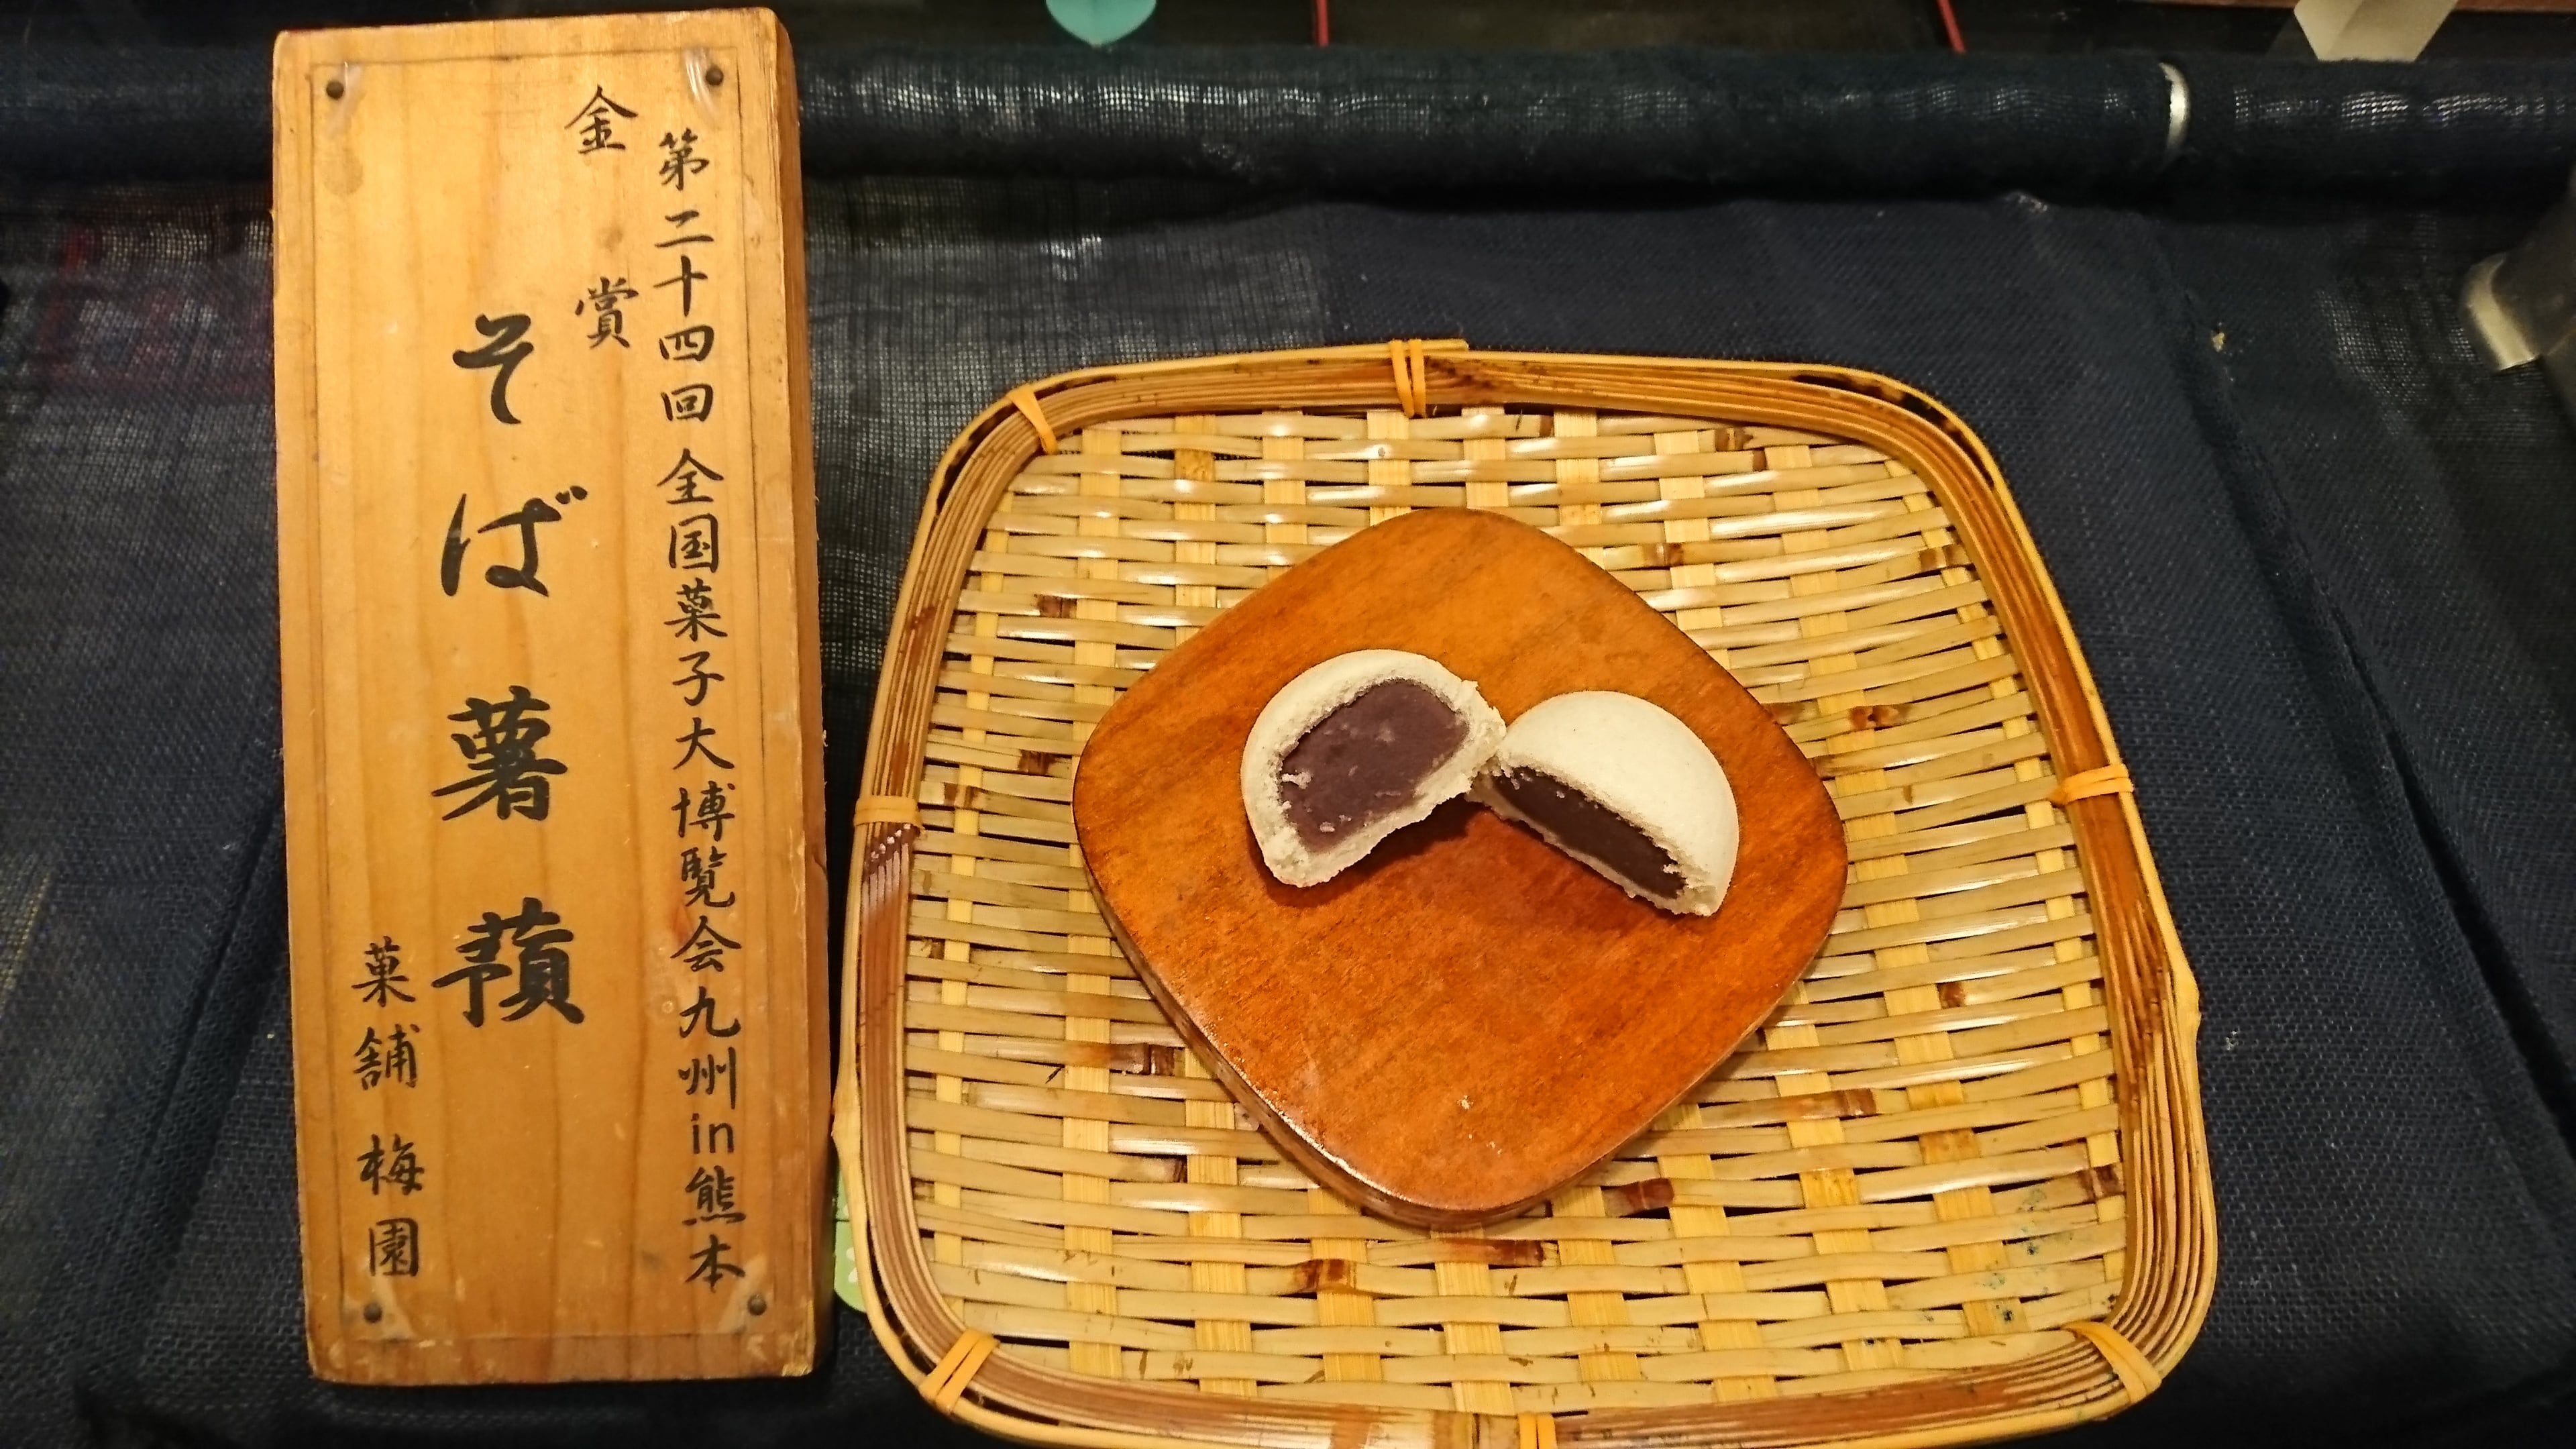 第二十四回全国菓子大博覧会九州in熊本
金賞
そば薯蕷
菓舗梅園